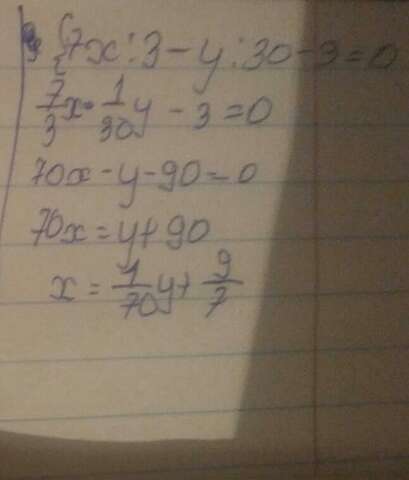 {7x:3-y:30-3=0
7/3 x - 1/30 y - 3 = 0
70x - y - 90 = 0
70x = y + 90
x = 1/70 y + 9/7